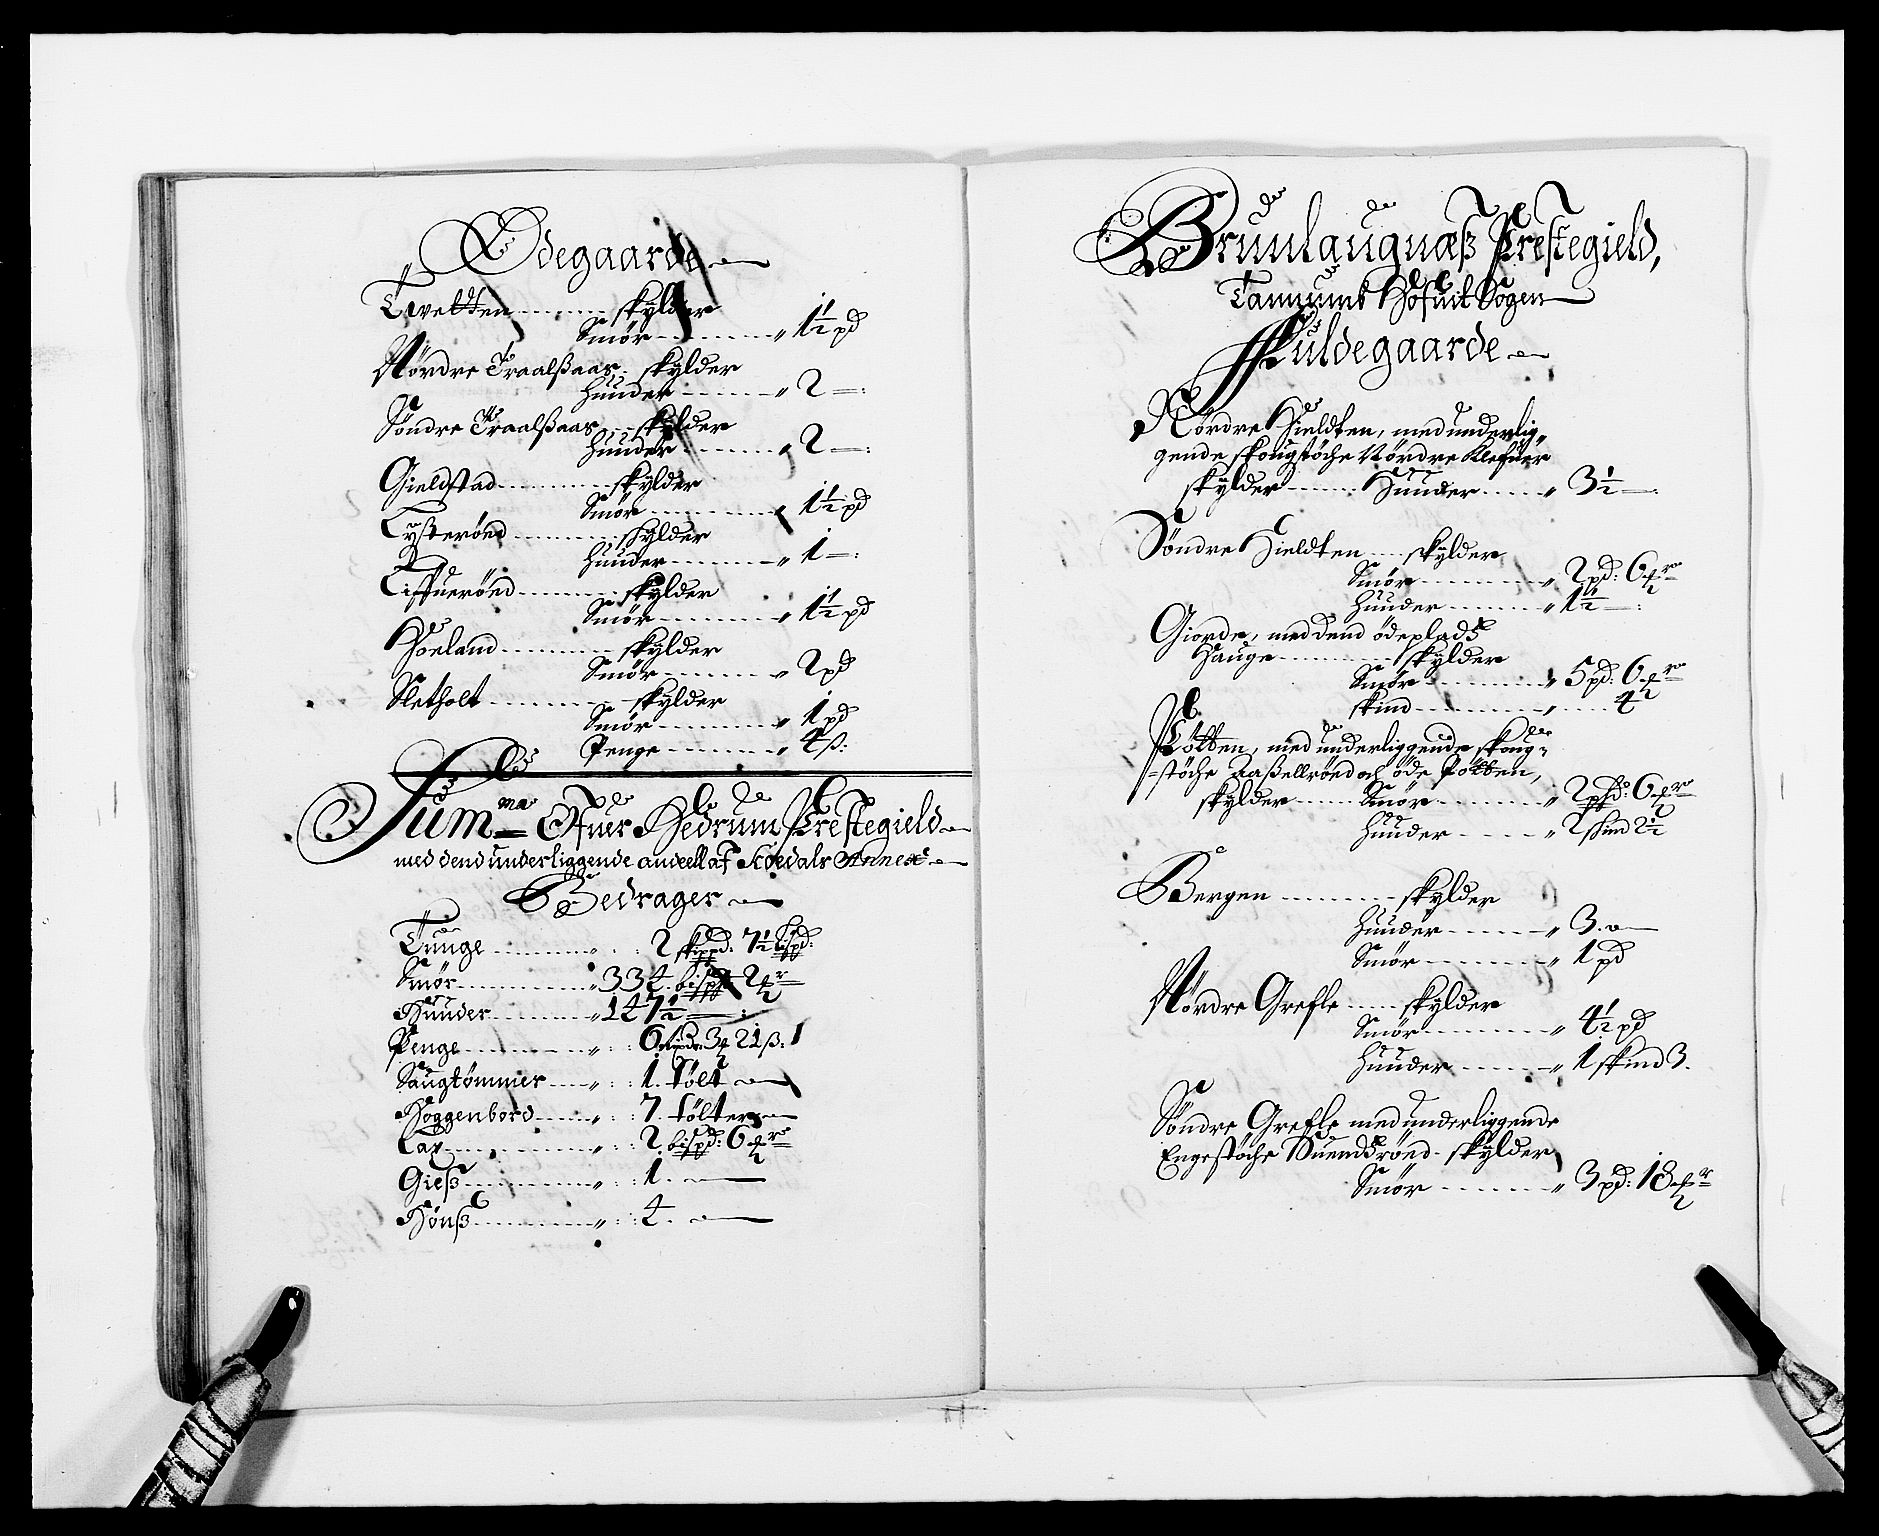 Ødegaarde
Tveitten skylder
Smør " 1½ pd
Nørdre Traalßaas skylder
Huuder " 2
Søndre Traalßaas skylder
Huuder " 2
Gieldstad skylder
Smør " 1½ pd
Lysterönd skylder
Huuder " 1
Liffuerönd skylder
Smør " 1½ pd
Høeland skylder
Smør " 2 pd
Sletholt skylder
Smør " 1 pd
Penge " 4 ß:
Summa Ofuer Hedrum Prestegield
med dend underliggende andeell af Kodals Annex
Bedrager
Tunge " 2 skippd: 7½ bispd:
Smør " 334 bispd 2 ₶r
Huuder " 147½
Penge " 6 21 ß: 1
Saugtømmer " 1 Tølt
Hoggenbord " 7 Tølter
Lax " 2 bispd: 6 ₶r
Gieß " 1
Hønß " 4
Brunlaugnæß Prestegield,
Tannums Hofuit Sogen
Fuldegaarde
Nørdre Hieldten, med underlig-
gende skougstøche Nørdre Klefuer
skylder Huuder " 3½
Søndre Hieldten skylder
Smør " 2 pd: 6 ₶r
Huuder " 1½
Giorde, med dend ødeplads
Hauge skylder
Smør " 5 pd: 6 ₶r
skind " 4
Pøtten, med underliggende skoug-
-støche Aaßellrönd och øde Pøtten,
skylder Smør " 2 pd: 6 ₶r
Huuder " 2 skind 2½
Bergen skylder
Huuder " 3
Smør " 1 pd
Nørdre Grefle skylder
Smør " 4½ pd
Huuder " 1 skind 3.
Søndre Grefle med underliggende
Engestøche Suendsrönd skylder
Smør " 3 pd: 18 ₶r